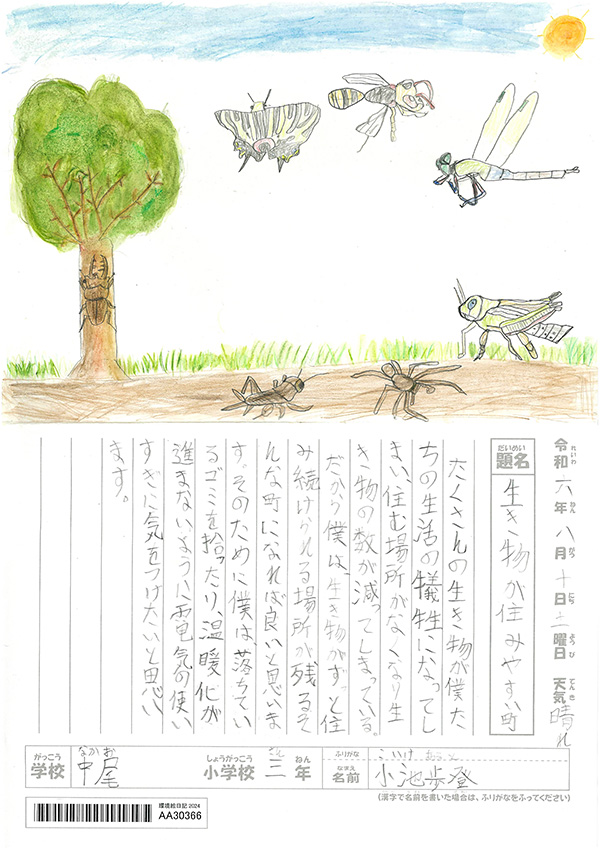 れいわ ねん がつ にち ようび てんき
令和六年八月十日土曜日 天気 晴れ
だいめい
題名 生き物が住みやすい町
たくさんの生き物が僕た
ちの生活の犠牲になってし
まい、住む場所がなくなり生
き物の数が減ってしまっている。
だから僕は、生き物がずっと住
み続けられる場所が残るそ
んな町になれば良いと思いま
す。そのために僕は、落ちてい
るゴミを拾ったり、温暖化が
進まないように電気の使い
すぎに気をつけたいと思い
ます。
がっこう なかお しょうがっこう さん ねん ふりがな こいけ
学校 中尾 小学校 三年 なまえ 名前 小池歩登
(漢字で名前を書いた場合は、ふりがなをふってください)
環境絵日記 2024
AA30366